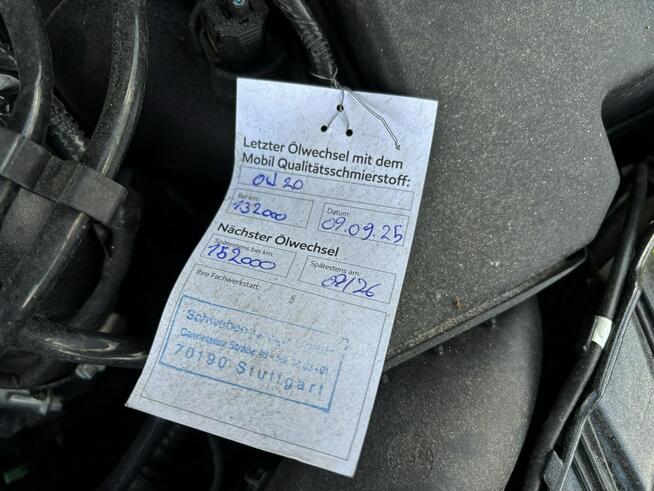 Letzter Ölwechsel mit dem
Mobil Qualitätsschmierstoff:
0W20
Bei km:
132000
Datum:
09.09.25
Nächster Ölwechsel
Spätestens bei km:
152000
Spätestens am:
09/26
Ihre Fachwerkstatt:
70190 Stuttgart